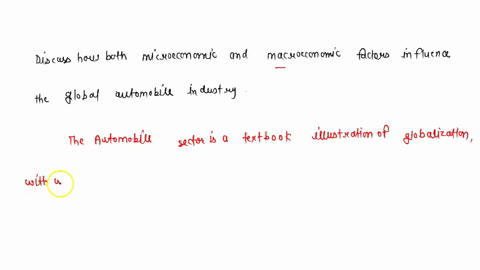 Discuss how both microeconomic and macroeconomic factors influence
the global automobile industry.
The Automobile sector is a textbook illustration of globalization,
with